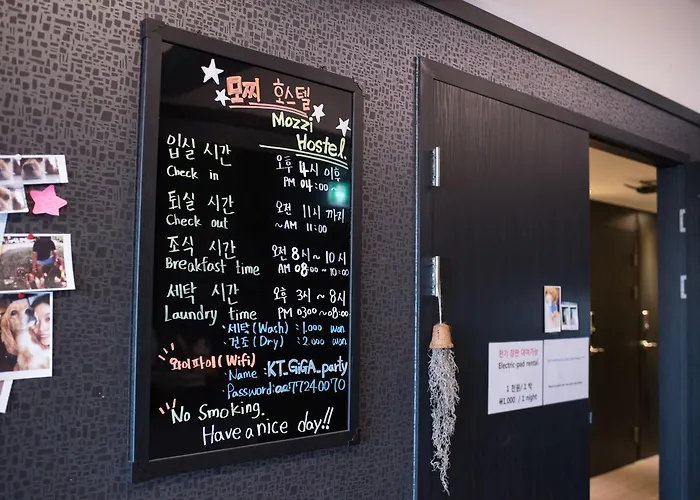 모찌 호스텔
Mozzi
Hostel.
입실 시간 오후 4시 이후
Check in PM 04:00 ~
퇴실 시간 오전 11시 까지
Check out ~ AM 11:00
조식 시간 오전 8시 ~ 10시
Breakfast time AM 08:00 ~ 10:00
세탁 시간 오후 3시 ~ 8시
Laundry time PM 03:00 ~ 08:00
· 세탁 (Wash) : 1.000 won
· 건조 (Dry) : 2.000 won
와이파이 (Wifi)
· Name : KT_GiGA_party
· Password:
No Smoking.
Have a nice day!!
전기 장판 대여가능
Electric-pad rental
1 천원/ 1박
₩1,000 / 1 night